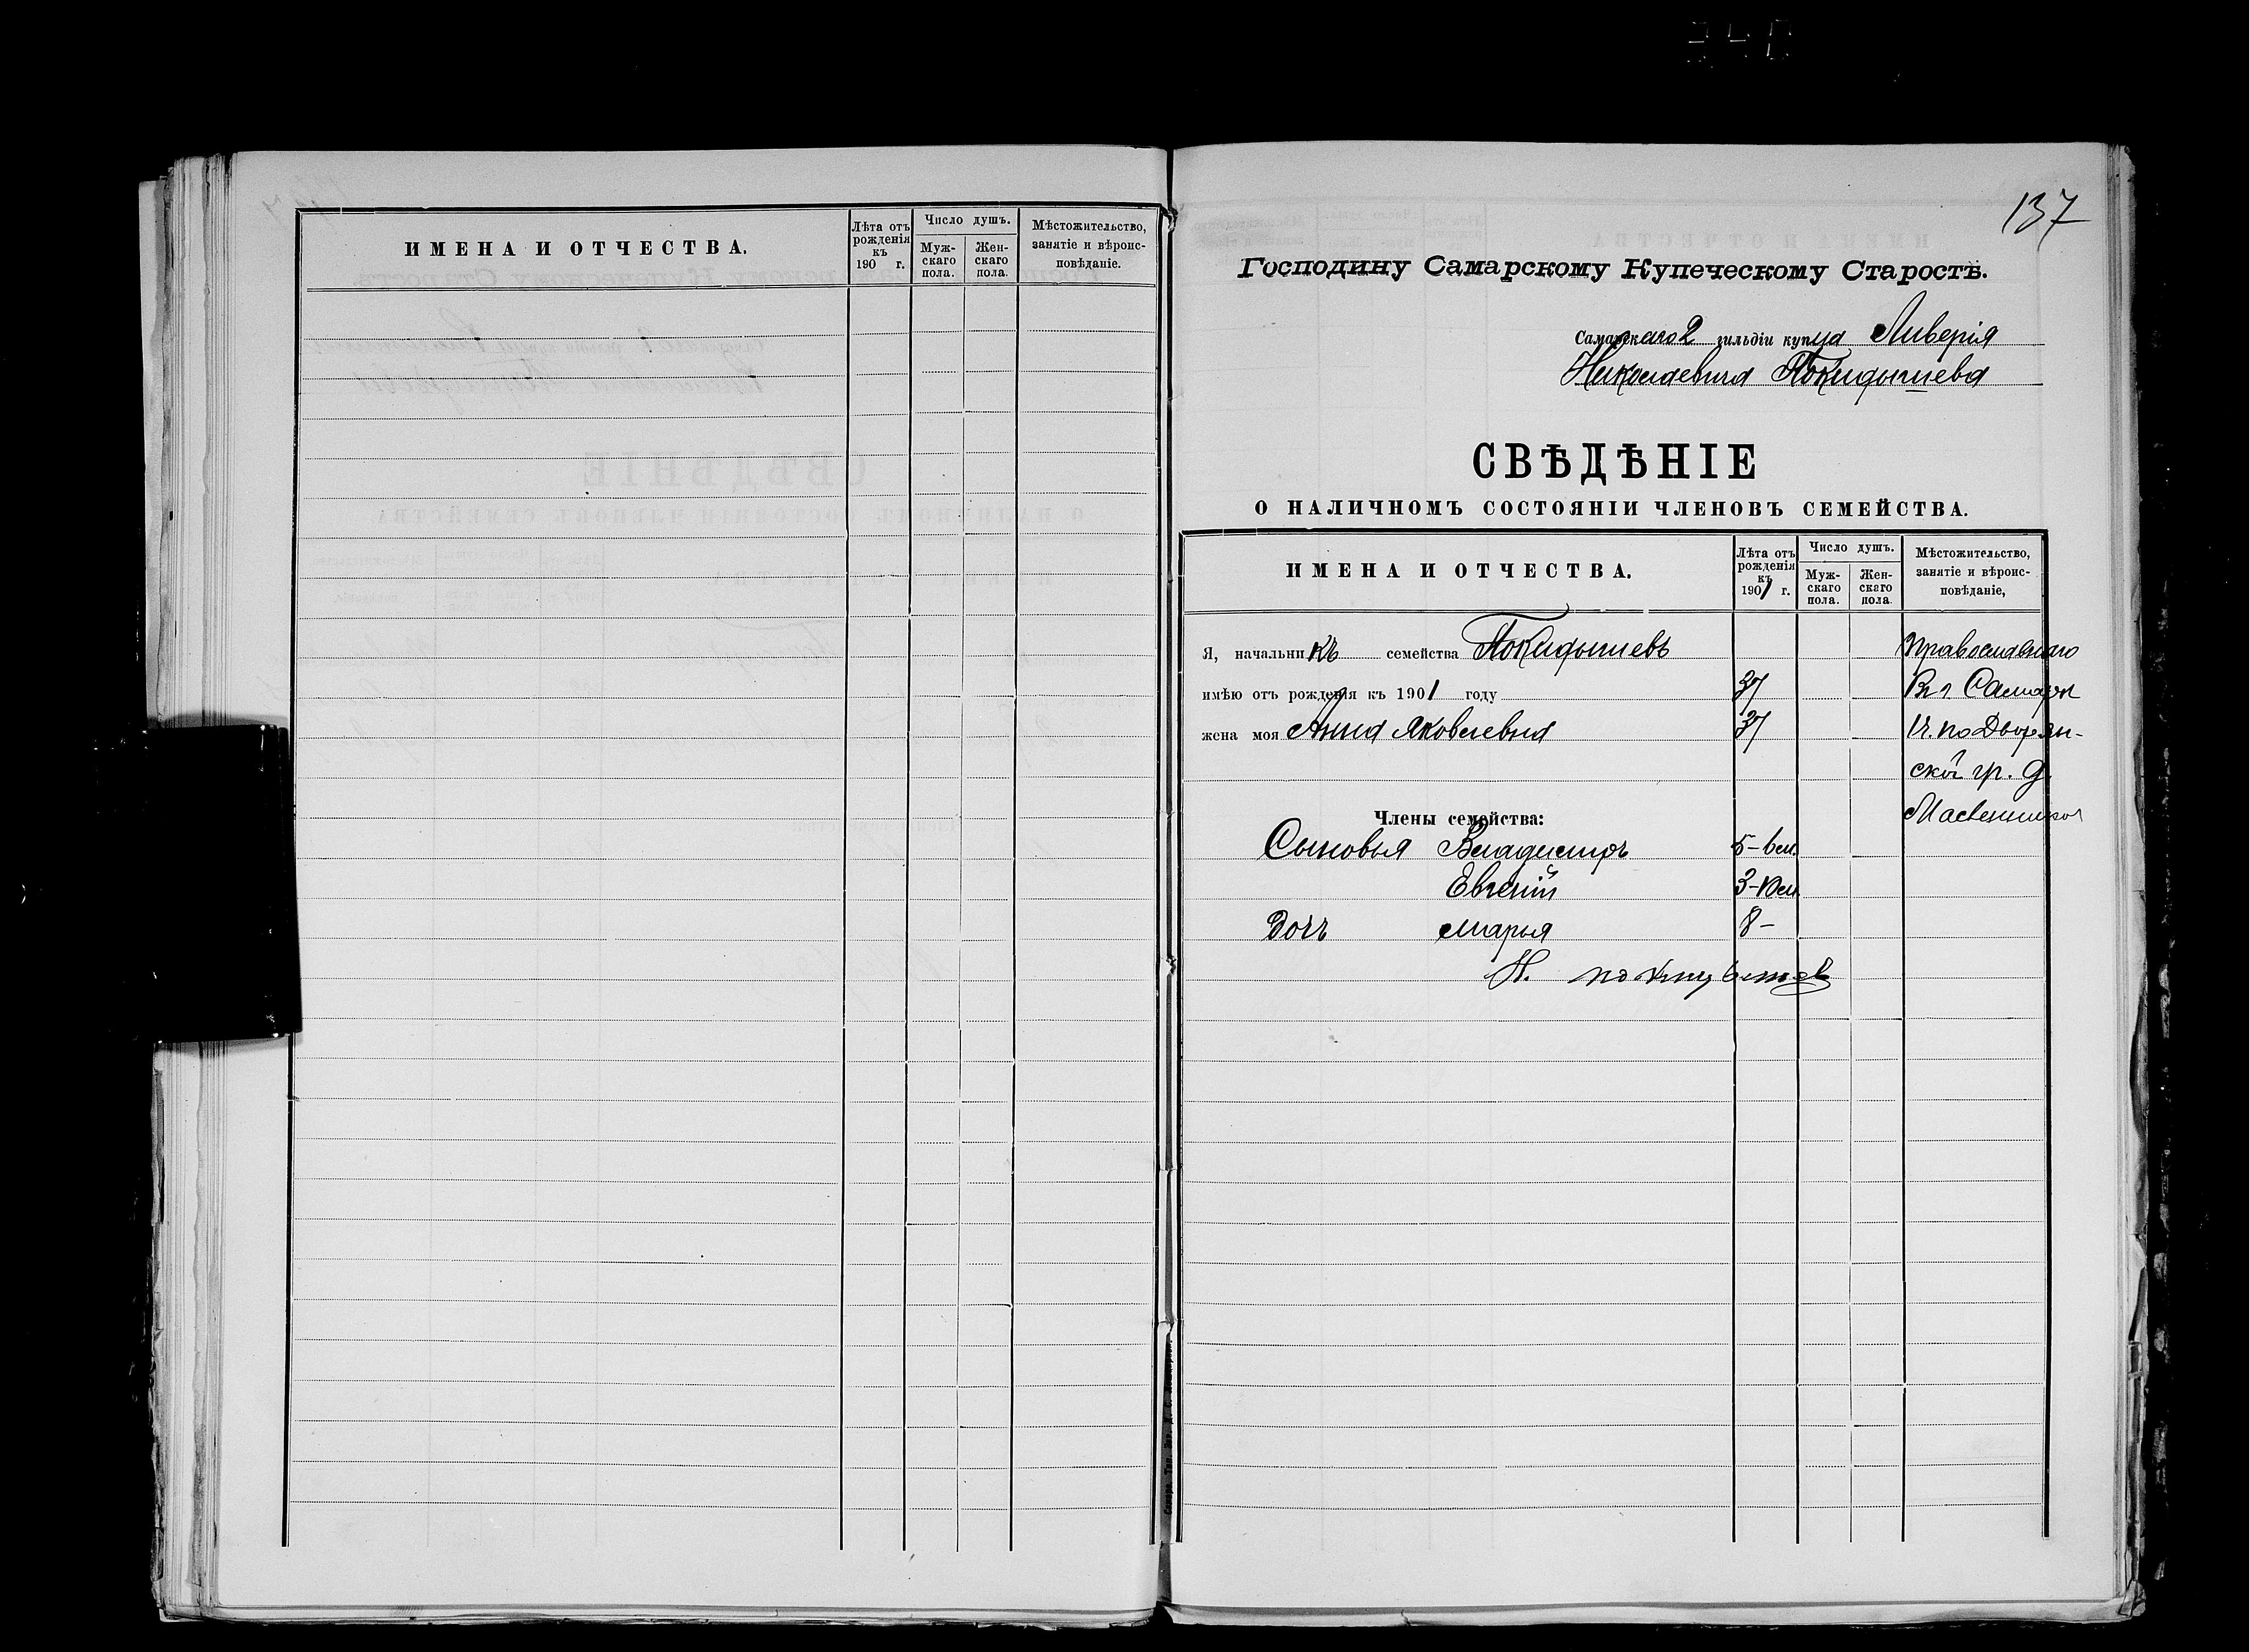 ИМЕНА И ОТЧЕСТВА.
Лѣта отъ рожденія къ 190 г.
Число душъ.
Мужскаго пола.
Женскаго пола.
Мѣстожительство, занятіе и вѣроисповѣданіе.
137
Господину Самарскому Купеческому Старостѣ.
Самарскаго 2 гильдіи купца Ливерія
Николаевича Покидышева
СВѢДѢНІЕ
О НАЛИЧНОМЪ СОСТОЯНІИ ЧЛЕНОВЪ СЕМЕЙСТВА.
ИМЕНА И ОТЧЕСТВА.
Лѣта отъ рожденія къ 1901 г.
Число душъ.
Мужскаго пола.
Женскаго пола.
Мѣстожительство, занятіе и вѣроисповѣданіе,
Я, начальникъ семейства Покидышевъ Православнаго
имѣю отъ рожденія къ 1901 году 37 Въ г Самарѣ
жена моя Анна Яковлевна 37 1ч. по Дворян-
ской ур. д.
Члены семейства:
Сыновья Владимиръ 5-
Евгеній 3-
Дочь Марья 8-